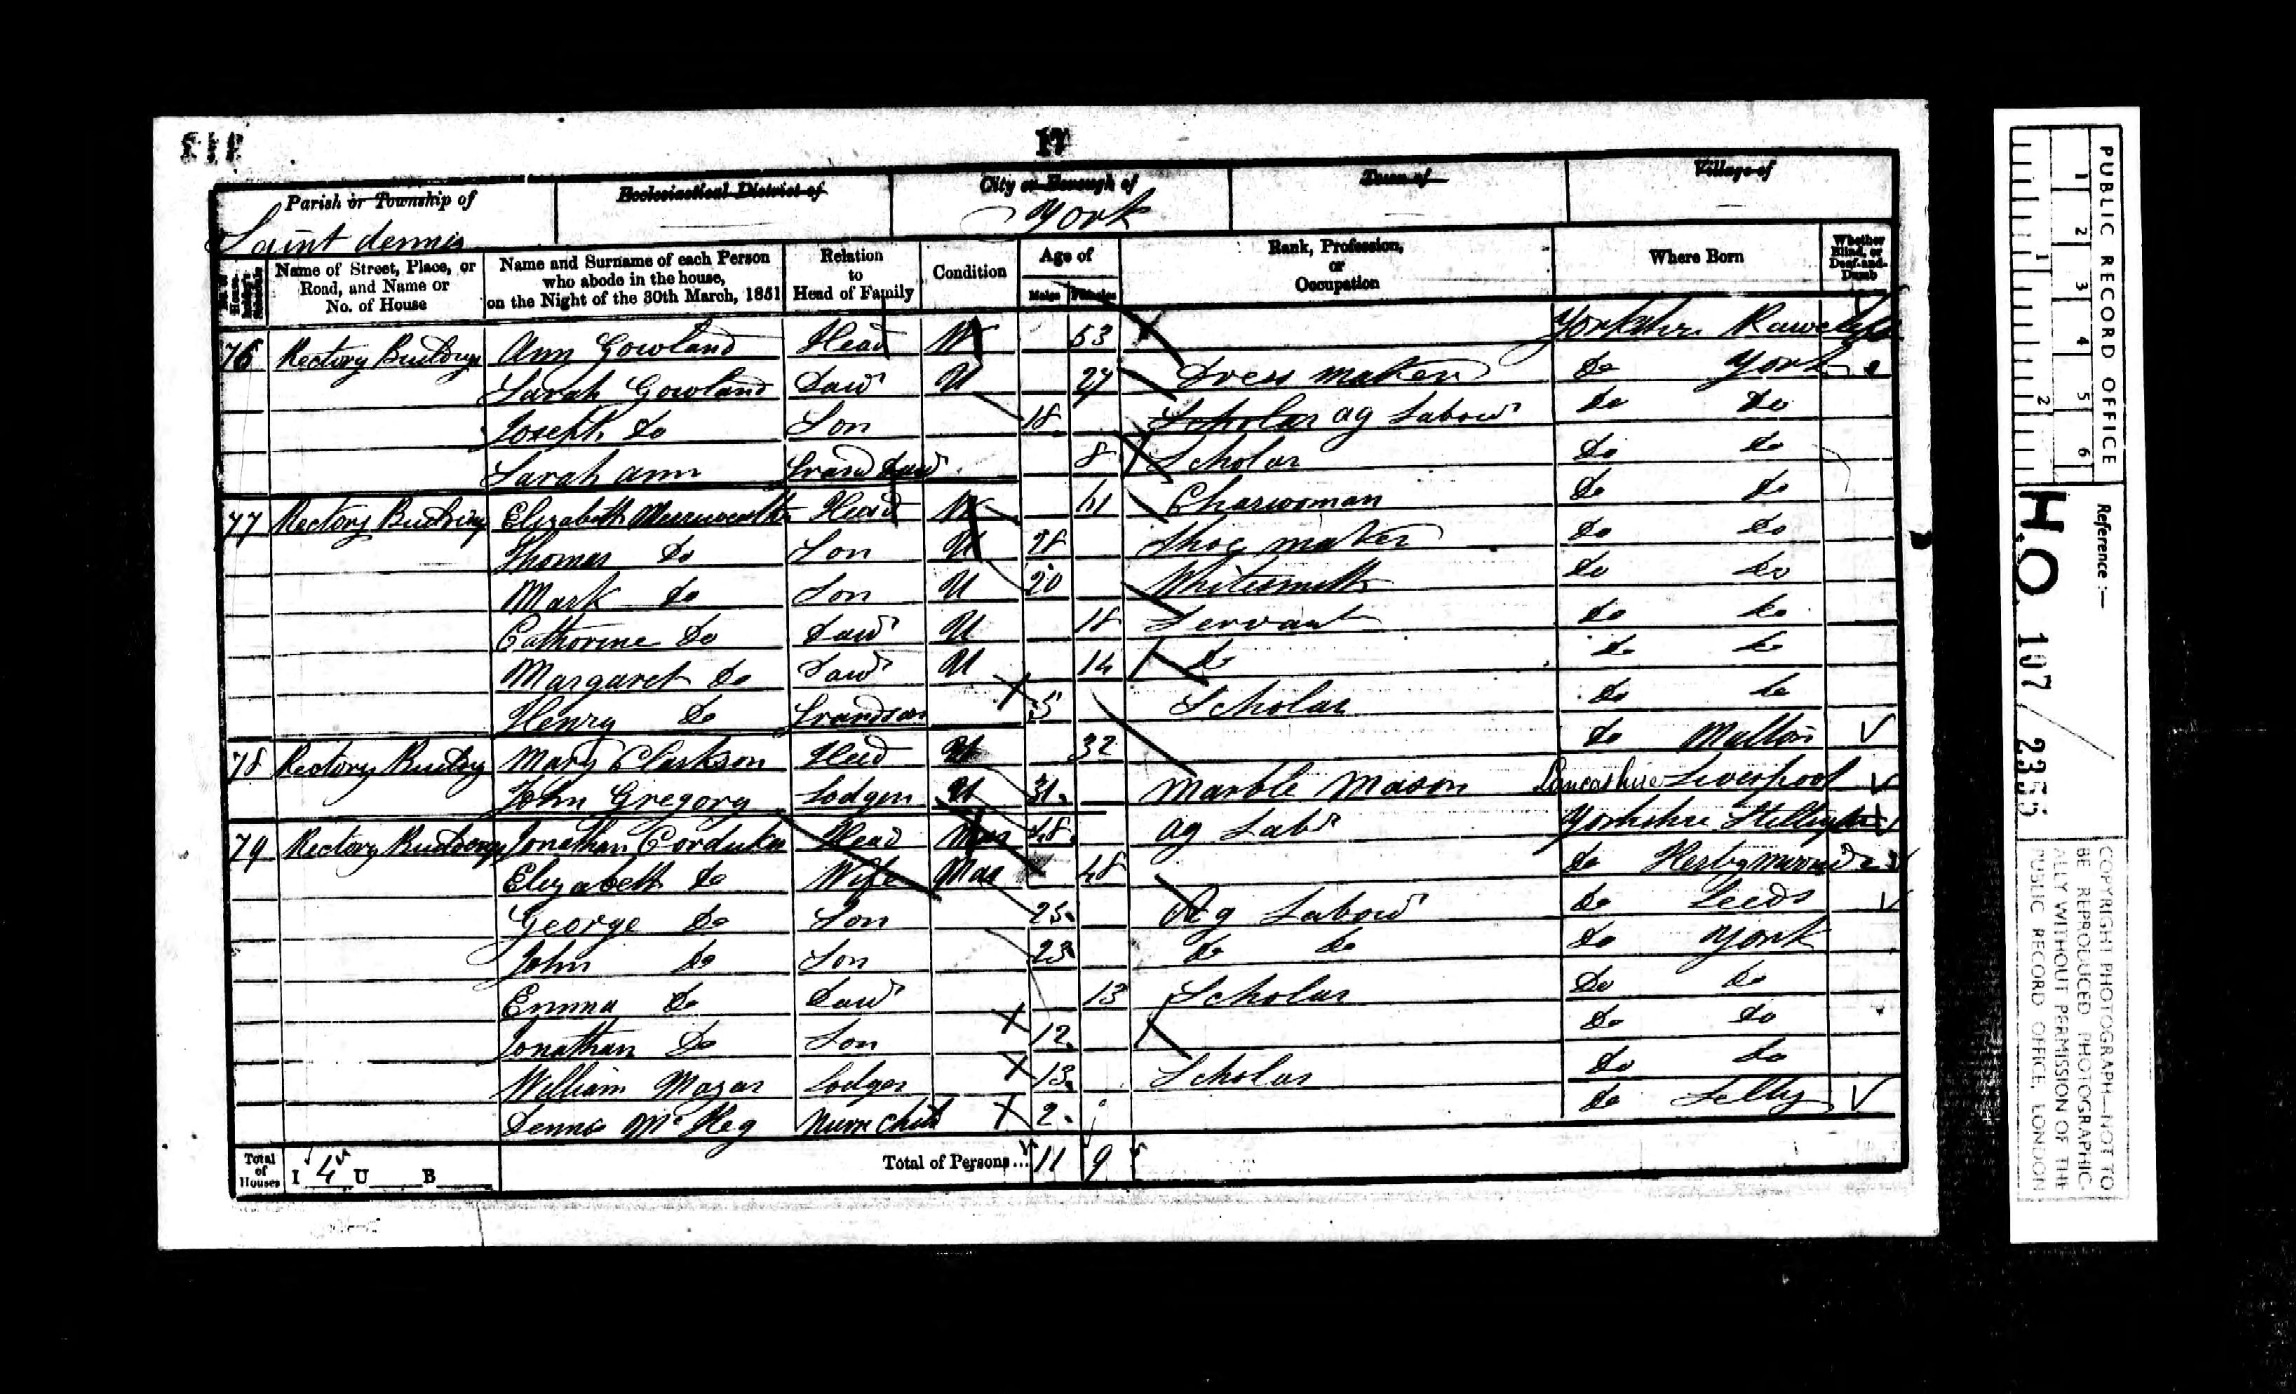 17
Parish or Township of
Saint dennis
Ecclesiastical District of
City or Borough of
York
Town of
Village of
Name of Street, Place, or Road, and Name or No. of House
Name and Surname of each Person who abode in the house, on the Night of the 30th March, 1851
Relation to Head of Family
Condition
Age of
Males Females
Rank, Profession, or Occupation
Where Born
Whether Blind, or Deaf-and-Dumb
76 Rectory Buildings Ann Gowland Head W 53 Yorkshire Rawcliffe
Sarah Gowland Daur U 27 Dress maker Do York
Joseph Do Son 18 Scholar ag Labour Do Do
Sarah ann Grand Daur 8 Scholar Do Do
77 Rectory Buildings Elizabeth Head W Charwoman Do Do
Thomas Do Son U 28 Shoe maker Do Do
Mark Do Son U 20 Whitesmith Do Do
Catherine Do Daur U 18 Servant Do Do
Margaret Do Daur U 14 Do Do Do
Henry Do Grandson 5 Scholar Do Do
78 Rectory Buildings Mary Clarkson Head U 32 Do Malton
John Gregory Lodger U 31 Marble Mason Lancashire Liverpool
79 Rectory Buildings Jonathan Corduker Head Mar 48 ag Labr Yorkshire
Elizabeth Do Wife Mar 48 Do
George Do Son 25 Ag Labour Do Leeds
John Do Son 23 Do Do Do York
Emma Do Daur 13 Scholar Do Do
Jonathan Do Son 12 Do Do
William Lodger 13 Scholar Do Do
Dennis Nurse Child 2 Do Selby
Total of Houses I 4 U B Total of Persons... 11 9
PUBLIC RECORD OFFICE
1 2 3 4 5 6
1 2
Reference :—
H.O. 107 / 2355
COPYRIGHT PHOTOGRAPH—NOT TO
BE REPRODUCED PHOTOGRAPHIC-
ALLY WITHOUT PERMISSION OF THE
PUBLIC RECORD OFFICE, LONDON